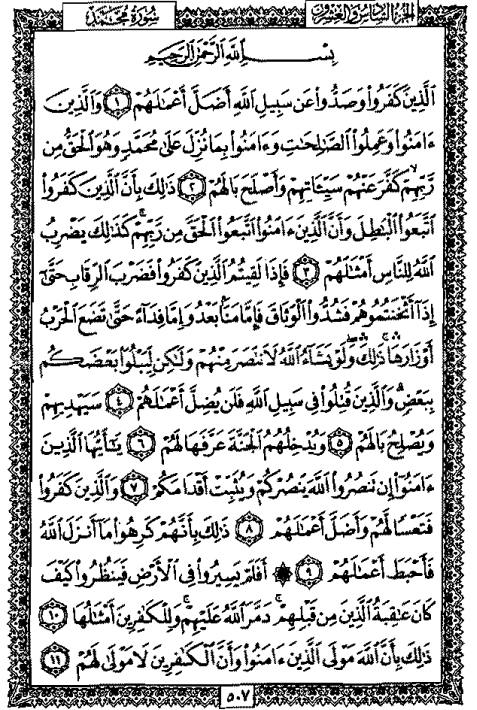 الجزء السادس والعشرون
سورة محمد
بِسْمِ ٱللَّهِ ٱلرَّحْمَٰنِ ٱلرَّحِيمِ
ٱلَّذِينَ كَفَرُوا۟ وَصَدُّوا۟ عَن سَبِيلِ ٱللَّهِ أَضَلَّ أَعْمَٰلَهُمْ ١ وَٱلَّذِينَ
ءَامَنُوا۟ وَعَمِلُوا۟ ٱلصَّٰلِحَٰتِ وَءَامَنُوا۟ بِمَا نُزِّلَ عَلَىٰ مُحَمَّدٍ وَهُوَ ٱلْحَقُّ مِن
رَّبِّهِمْ ۙ كَفَّرَ عَنْهُمْ سَيِّـَٔاتِهِمْ وَأَصْلَحَ بَالَهُمْ ٢ ذَٰلِكَ بِأَنَّ ٱلَّذِينَ كَفَرُوا۟
ٱتَّبَعُوا۟ ٱلْبَٰطِلَ وَأَنَّ ٱلَّذِينَ ءَامَنُوا۟ ٱتَّبَعُوا۟ ٱلْحَقَّ مِن رَّبِّهِمْ ۚ كَذَٰلِكَ يَضْرِبُ
ٱللَّهُ لِلنَّاسِ أَمْثَٰلَهُمْ ٣ فَإِذَا لَقِيتُمُ ٱلَّذِينَ كَفَرُوا۟ فَضَرْبَ ٱلرِّقَابِ حَتَّىٰٓ
إِذَآ أَثْخَنتُمُوهُمْ فَشُدُّوا۟ ٱلْوَثَاقَ فَإِمَّا مَنًّۢا بَعْدُ وَإِمَّا فِدَآءً حَتَّىٰ تَضَعَ ٱلْحَرْبُ
أَوْزَارَهَا ۚ ذَٰلِكَ ۛ وَلَوْ يَشَآءُ ٱللَّهُ لَٱنتَصَرَ مِنْهُمْ وَلَٰكِن لِّيَبْلُوَا۟ بَعْضَكُم
بِبَعْضٍ ۗ وَٱلَّذِينَ قُتِلُوا۟ فِى سَبِيلِ ٱللَّهِ فَلَن يُضِلَّ أَعْمَٰلَهُمْ ٤ سَيَهْدِيهِمْ
وَيُصْلِحُ بَالَهُمْ ٥ وَيُدْخِلُهُمُ ٱلْجَنَّةَ عَرَّفَهَا لَهُمْ ٦ يَٰٓأَيُّهَا ٱلَّذِينَ
ءَامَنُوٓا۟ إِن تَنصُرُوا۟ ٱللَّهَ يَنصُرْكُمْ وَيُثَبِّتْ أَقْدَامَكُمْ ٧ وَٱلَّذِينَ كَفَرُوا۟
فَتَعْسًا لَّهُمْ وَأَضَلَّ أَعْمَٰلَهُمْ ٨ ذَٰلِكَ بِأَنَّهُمْ كَرِهُوا۟ مَآ أَنزَلَ ٱللَّهُ
فَأَحْبَطَ أَعْمَٰلَهُمْ ٩ ۞ أَفَلَمْ يَسِيرُوا۟ فِى ٱلْأَرْضِ فَيَنظُرُوا۟ كَيْفَ
كَانَ عَٰقِبَةُ ٱلَّذِينَ مِن قَبْلِهِمْ ۚ دَمَّرَ ٱللَّهُ عَلَيْهِمْ ۖ وَلِلْكَٰفِرِينَ أَمْثَٰلُهَا ١٠
ذَٰلِكَ بِأَنَّ ٱللَّهَ مَوْلَى ٱلَّذِينَ ءَامَنُوا۟ وَأَنَّ ٱلْكَٰفِرِينَ لَا مَوْلَىٰ لَهُمْ ١١
٥٠٧